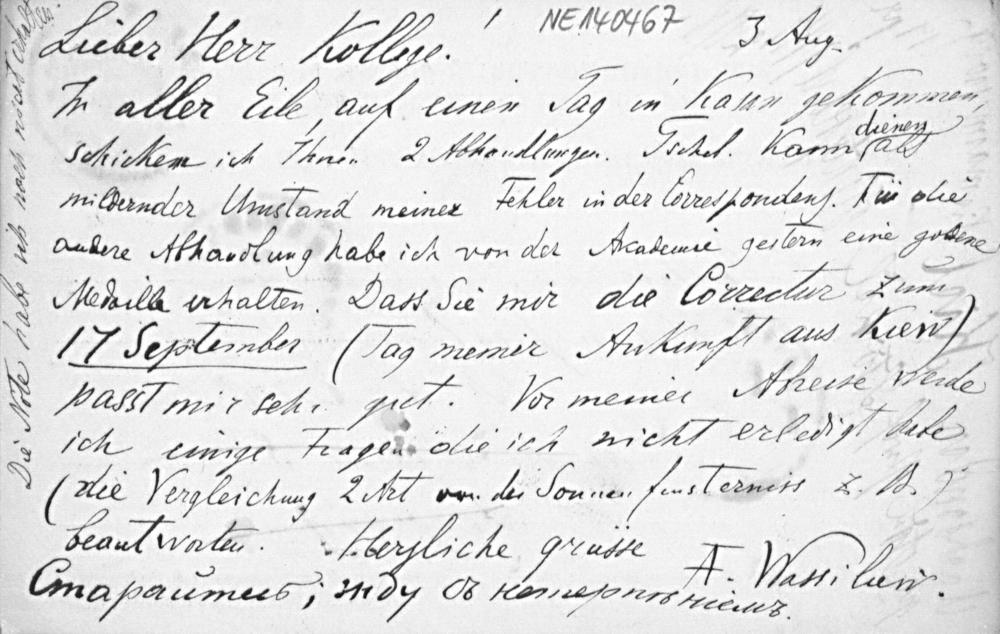 NE140467
3 Aug.
Lieber Herr Kollege!
In aller Eile, auf einen Tag in Kasan gekommen,
schicken ich Ihnen 2 Abhandlungen. Tschel. Kann als dienen
mildernder Umstand meiner Fehler in der Correspondenz. Für die
andere Abhandlung habe ich von der Academie gestern eine goldene
Medaille erhalten. Dass Sie mir die Correctur zum
17 September (Tag meiner Ankunft aus Kiew)
passt mir sehr gut. Vor meiner Abreise werde
ich einige Fragen die ich nicht erledigt habe
(die Vergleichung 2 Art von der Sonnenfinsterniss z. B.)
beantworten. Herzliche grüsse
A. Wassiliew.
Старайтесь, жду съ нетерпѣніемъ.
Die Note habe ich noch nicht erhalten.